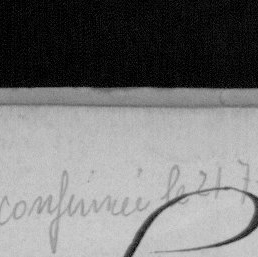 confirmée le 21 7